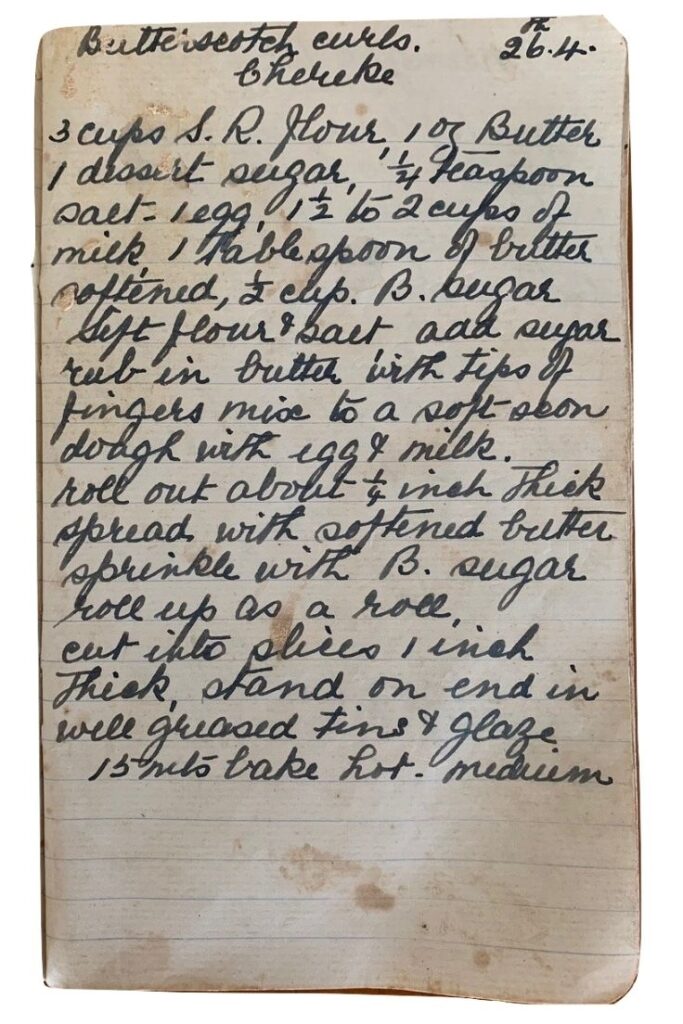 Butterscotch curls. 26.th 4.
Chereke
3 cups S. R. flour, 1 oz Butter
1 dessert sugar, 1/4 teaspoon
salt - 1 egg, 1 1/2 to 2 cups of
milk, 1 Tablespoon of butter
softened, 1/2 cup. B. sugar
Sift flour & salt add sugar
rub in butter with tips of
fingers mix to a soft scon
dough with egg & milk.
roll out about 1/4 inch thick
spread with softened butter
sprinkle with B. sugar
roll up as a roll,
cut into slices 1 inch
thick, stand on end in
well greased tins & glaze
15 mts bake hot - medium